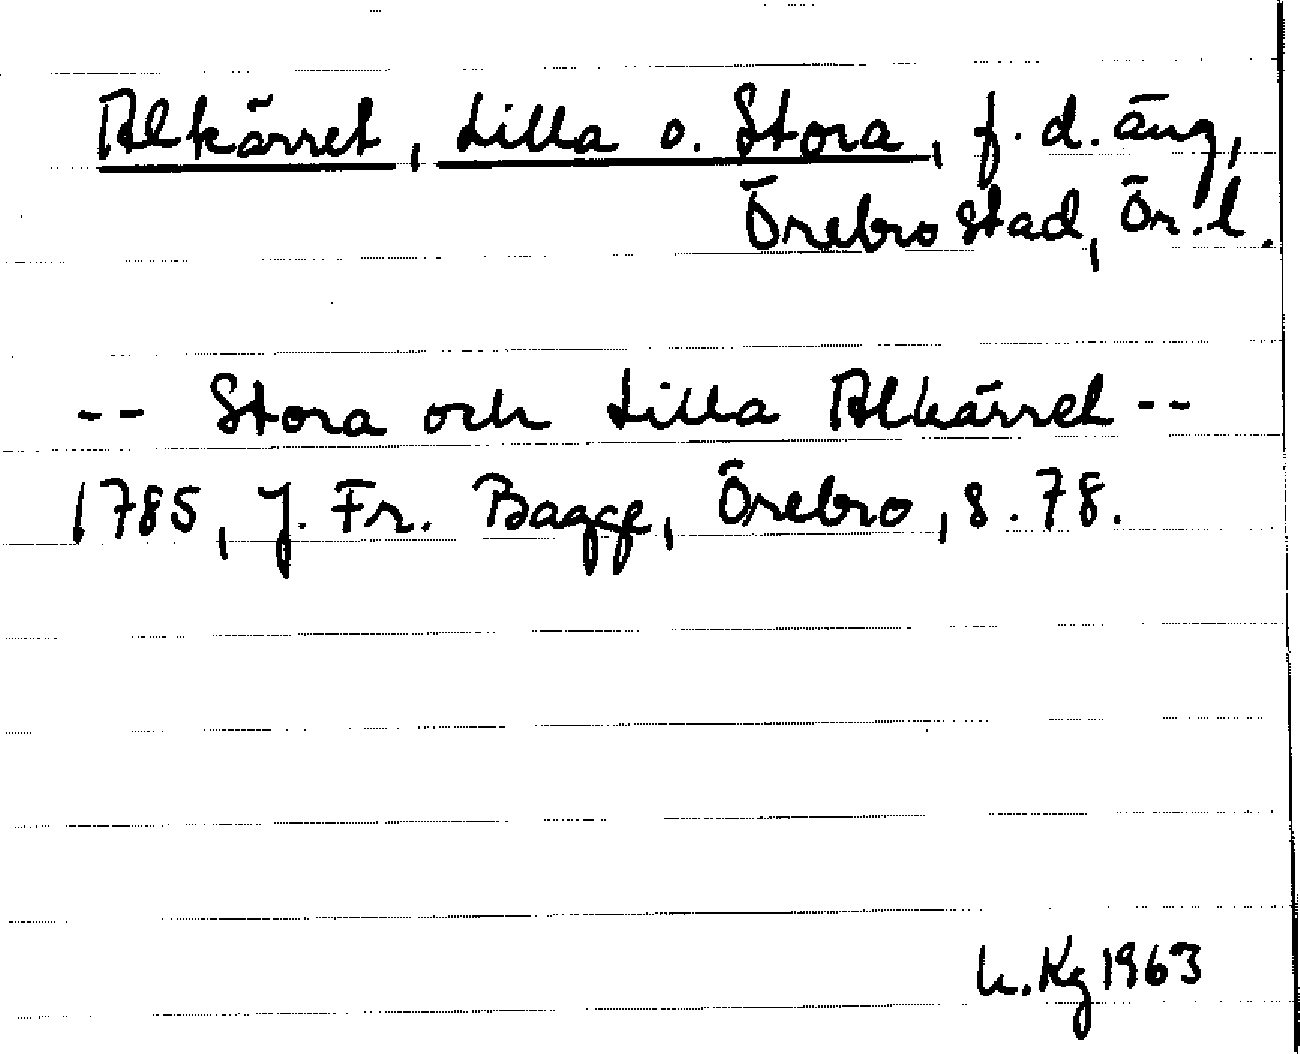 Alkärret, Lilla o. Stora, f.d. äng,
Örebro stad, Ör.l.
-- Stora och Lilla Alkärret --
1785, J. Fr. Bagge, Örebro, s. 78.
h. Kg 1963